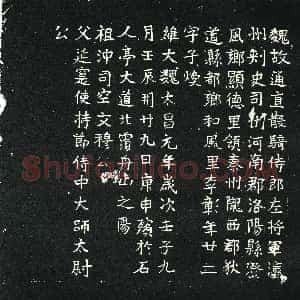 魏故通直散騎侍郎左將軍瀛
州刺史司州河南郡洛陽縣澄
風鄉顯德里領秦州隴西郡狄
道縣都鄉和風里李彰年廿二
字子煥
維大魏太昌元年歲次壬子九
月壬辰朔廿九日庚申殯於石
人亭大道北山之陽
祖沖司空文穆公
父延寔使持節侍中太師太尉
公